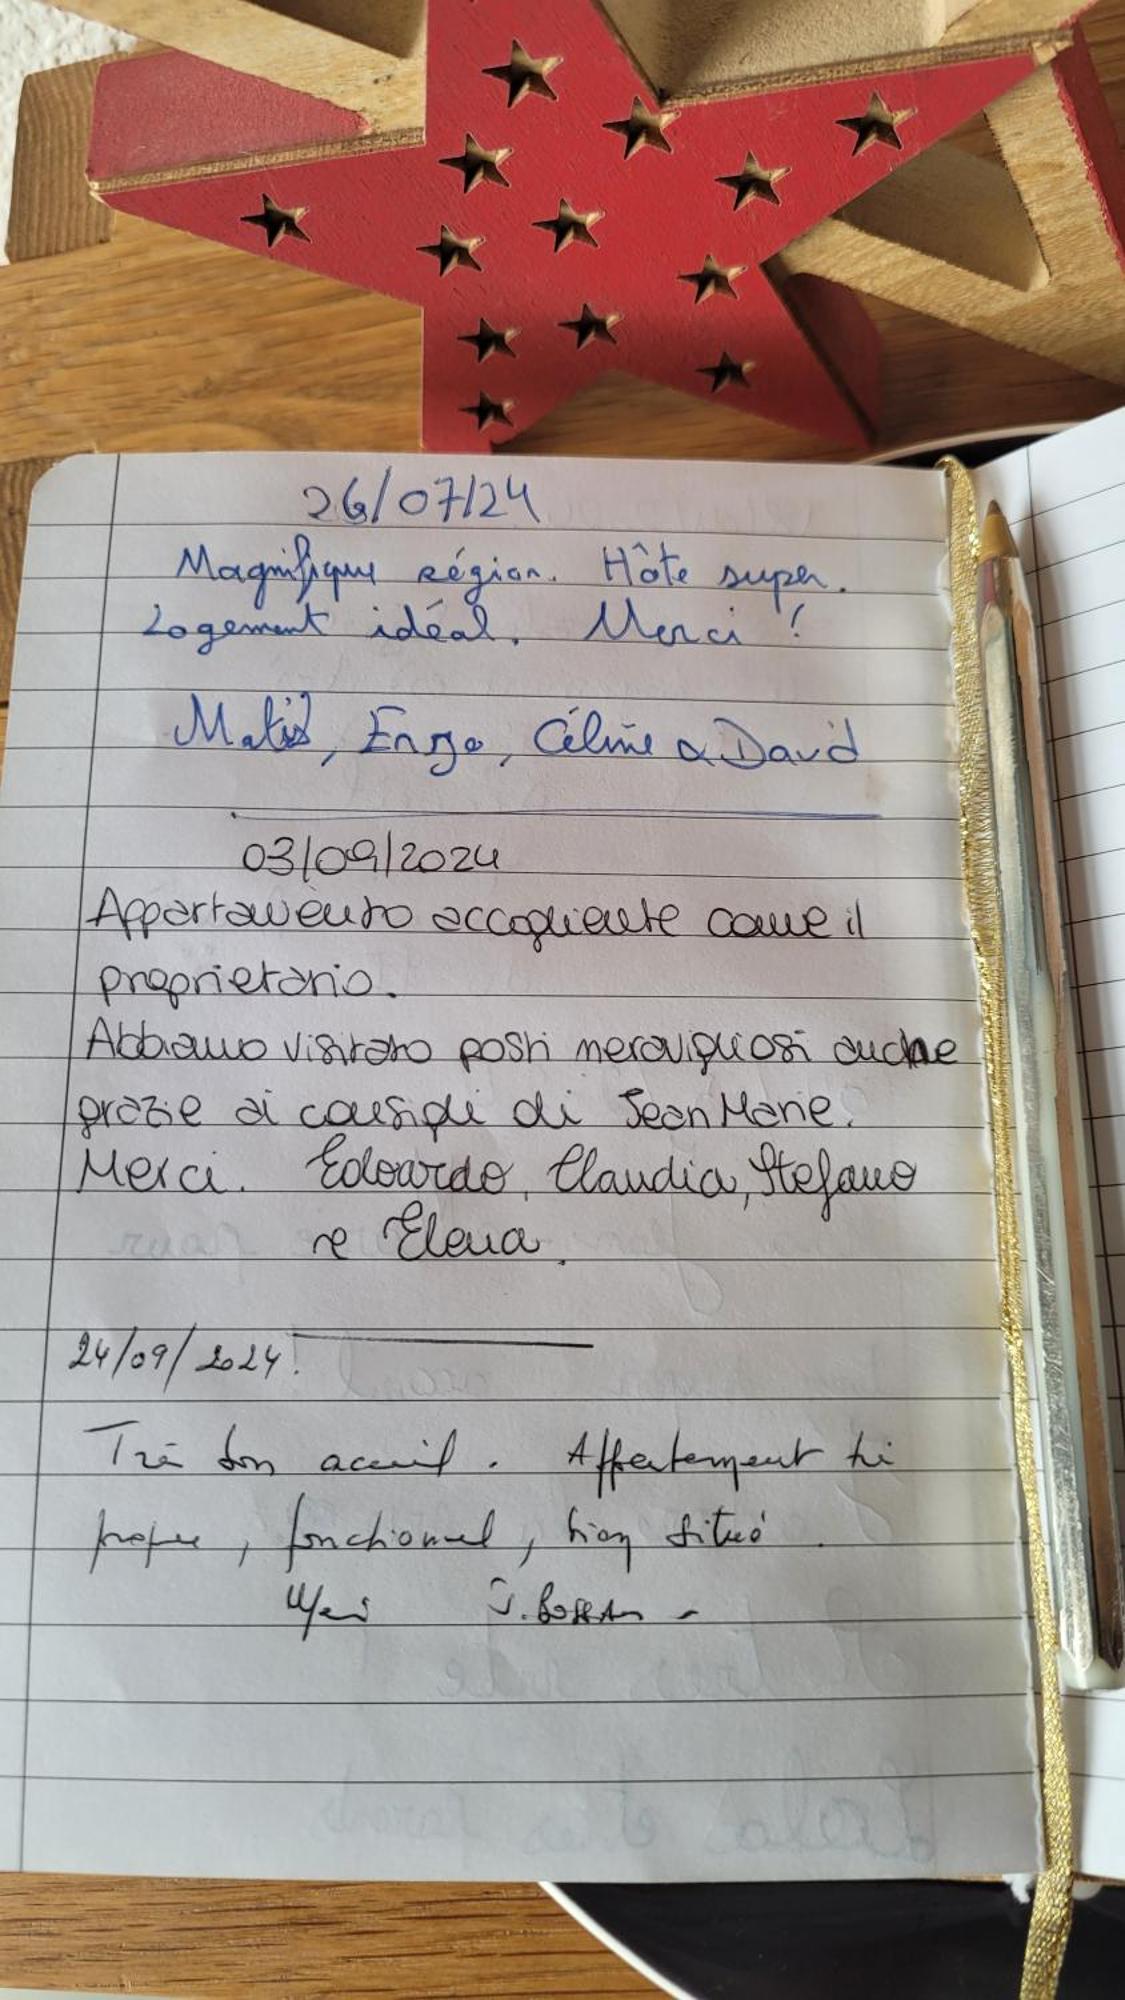 26/07/24
Magnifique région. Hôte super.
Logement idéal. Merci !
Matis, Enzo, Céline & David
03/09/2024
Appartamento accogliente come il
proprietario.
Abbiamo visitato posti meravigliosi anche
grazie ai consigli di Jean Marie.
Merci. Edoardo, Claudia, Stefano
e Elena.
24/09/2024.
Très bon accueil. Appartement très
propre, fonctionnel, bien situé.
Merci J.